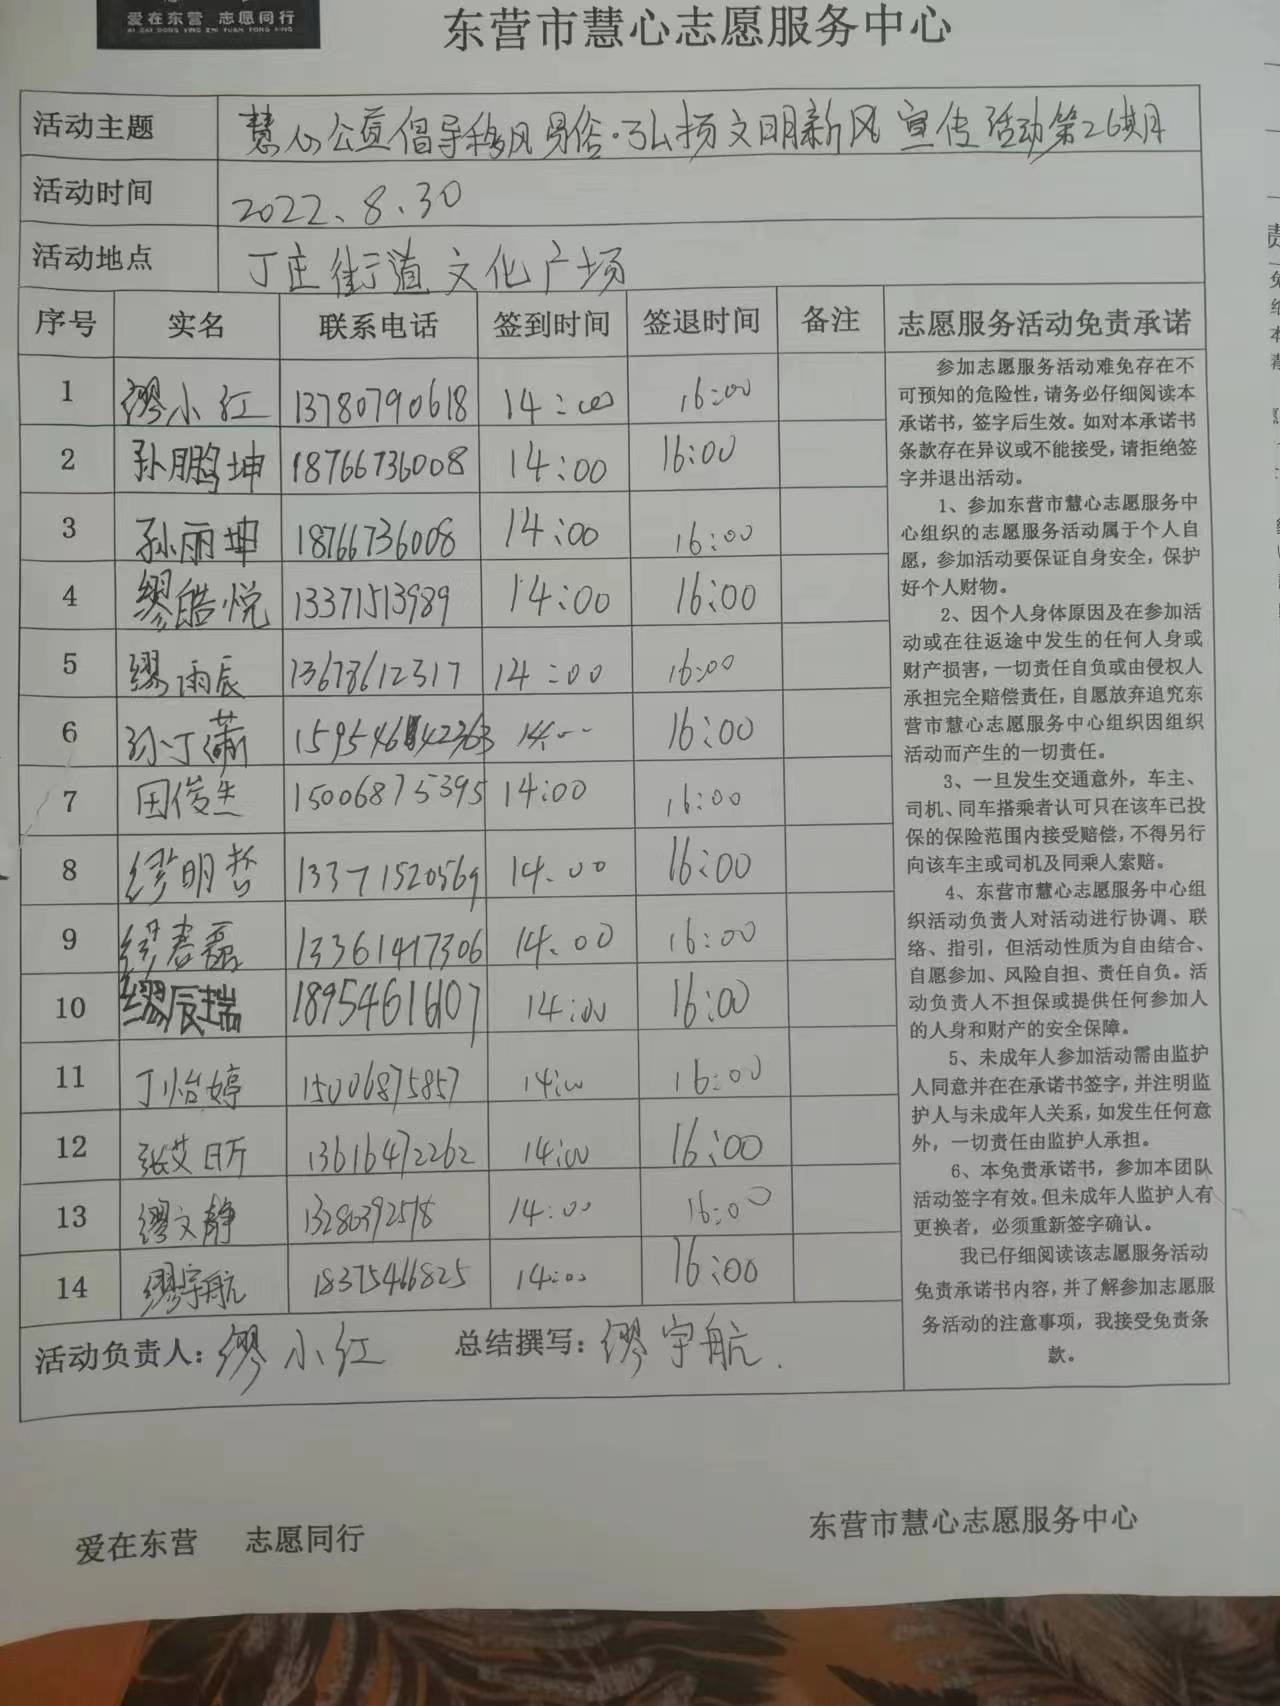 爱在东营 志愿同行
AI ZAI DONG YING ZHI YUAN TONG XING
东营市慧心志愿服务中心
活动主题 慧心公益倡导移风易俗·弘扬文明新风宣传活动第26期
活动时间 2022、8、30
活动地点 丁庄街道文化广场
序号 实名 联系电话 签到时间 签退时间 备注 志愿服务活动免责承诺
1 缪小红 13780790618 14:00 16:00
2 孙鹏坤 18766736008 14:00 16:00
3 孙雨坤 18766736008 14:00 16:00
4 缪皓悦 13371513989 14:00 16:00
5 缪雨辰 13678612317 14:00 16:00
6 孙丁潇 14:-- 16:00
7 田俊杰 15006875395 14:00 16:00
8 缪明哲 13371520569 14.00 16:00
9 缪春磊 13361417306 14.00 16:00
10 缪辰瑞 18954616107 14:00 16:00
11 丁怡婷 15006875857 14:00 16:00
12 张艾昕 13616472262 14:00 16:00
13 缪文静 14:00 16:00
14 缪宇航 18375466825 14:00 16:00
参加志愿服务活动难免存在不
可预知的危险性，请务必仔细阅读本
承诺书，签字后生效。如对本承诺书
条款存在异议或不能接受，请拒绝签
字并退出活动。
1、参加东营市慧心志愿服务中
心组织的志愿服务活动属于个人自
愿，参加活动要保证自身安全，保护
好个人财物。
2、因个人身体原因及在参加活
动或在往返途中发生的任何人身或
财产损害，一切责任自负或由侵权人
承担完全赔偿责任，自愿放弃追究东
营市慧心志愿服务中心组织因组织
活动而产生的一切责任。
3、一旦发生交通意外，车主、
司机、同车搭乘者认可只在该车已投
保的保险范围内接受赔偿，不得另行
向该车主或司机及同乘人索赔。
4、东营市慧心志愿服务中心组
织活动负责人对活动进行协调、联
络、指引，但活动性质为自由结合、
自愿参加、风险自担、责任自负。活
动负责人不担保或提供任何参加人
的人身和财产的安全保障。
5、未成年人参加活动需由监护
人同意并在在承诺书签字，并注明监
护人与未成年人关系，如发生任何意
外，一切责任由监护人承担。
6、本免责承诺书，参加本团队
活动签字有效。但未成年人监护人有
更换者，必须重新签字确认。
我已仔细阅读该志愿服务活动
免责承诺书内容，并了解参加志愿服
务活动的注意事项，我接受免责条
款。
活动负责人：缪小红 总结撰写：缪宇航.
爱在东营 志愿同行 东营市慧心志愿服务中心